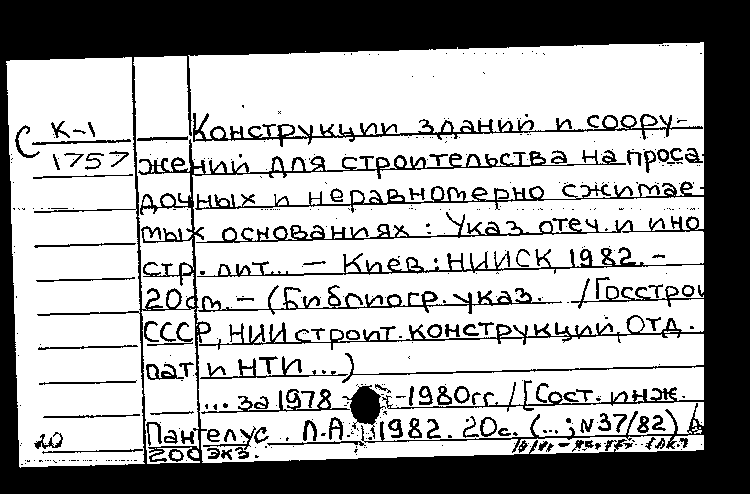 С К-1
1757
Конструкции зданий и соору-
жений для строительства на проса
дочных и неравномерно сжимае-
мых основаниях: Указ. отеч. и ино
стр. лит... – Киев: НИИСК, 1982. –
20см. – (Библиогр. указ. /Госстрой
СССР, НИИ строит. конструкций, Отд.
пат. и НТИ...)
... за 1978 -1980гг. /[Сост. инж.
Пантелус Л.А. 1982. 20с. (...; N37/82)
20
200 экз.